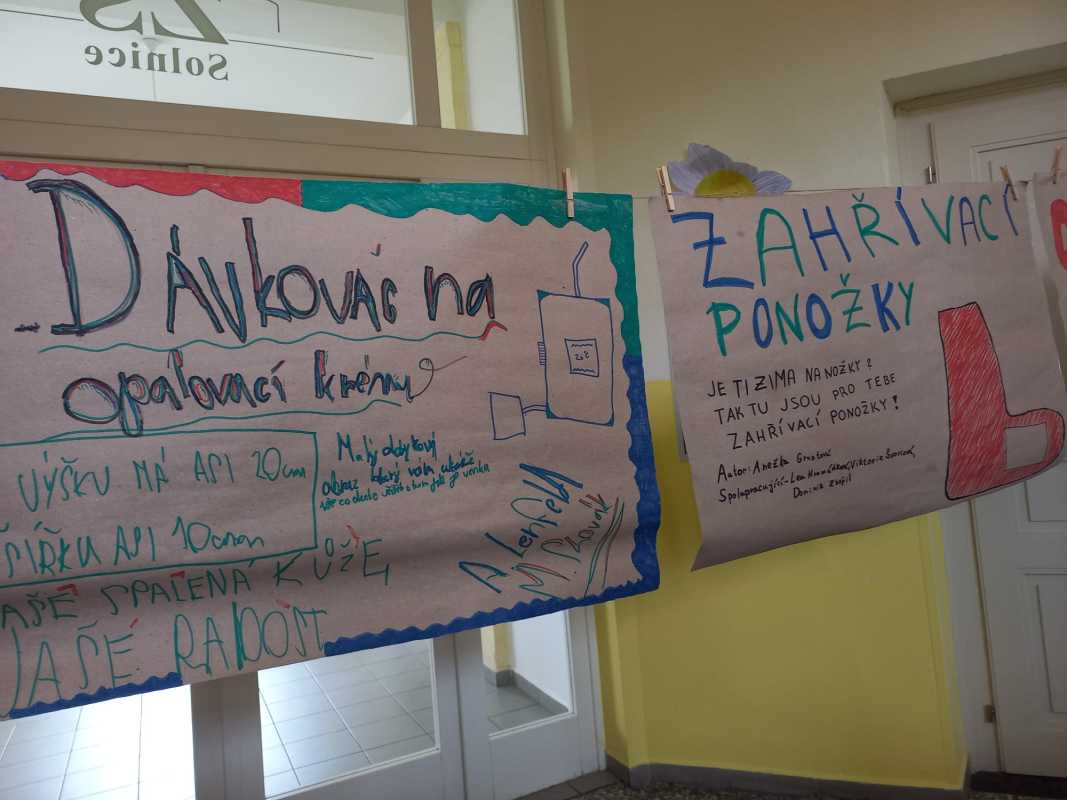 ZŠ
Solnice
DÁVKOVAČ na
opalovací krému
VÝŠKU MÁ ASI 20cm
ŠÍŘKU ASI 10cm
Malý dotykový
obraz který vám ukáže
AŠE SPALENÁ KŮŽE
VAŠE RADOST
A Lenfeld
ZAHŘÍVACÍ
PONOŽKY
JE TI ZIMA NA NOŽKY?
TAK TU JSOU PRO TEBE
ZAHŘÍVACÍ PONOŽKY!
Autor: Anežka
Spolupracující - Lea Viktorie
Dominik